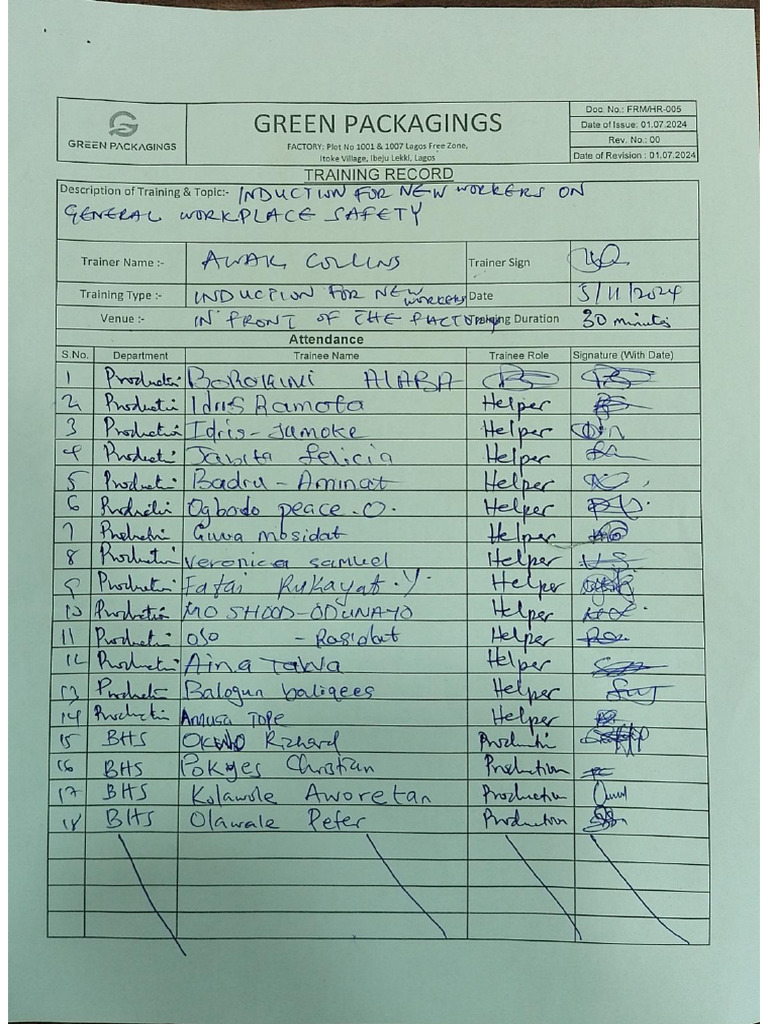 GREEN PACKAGINGS
GREEN PACKAGINGS
FACTORY: Plot No 1001 & 1007 Lagos Free Zone,
Itoke Village, Ibeju Lekki, Lagos
Doc. No.: FRM/HR-005
Date of Issue: 01.07.2024
Rev. No.: 00
Date of Revision : 01.07.2024
TRAINING RECORD
Description of Training & Topic:- INDUCTION FOR NEW WORKERS ON
GENERAL WORKPLACE SAFETY
Trainer Name :- AWAK COLLINS Trainer Sign
Training Type :- INDUCTION FOR NEW WORKERS Date 5/11/2024
Venue :- IN FRONT OF THE FACTORY Training Duration 30 minutes
Attendance
S.No. Department Trainee Name Trainee Role Signature (With Date)
1 Production ALABA
2 Production Idris Ramota Helper
3 Production Idris-Jumoke Helper
4 Production Felicia Helper
5 Production Badru-Aminat Helper
6 Production Ogbodo peace.O. Helper
7 Production mosidat Helper
8 Production Veronica samuel Helper
9 Production Fatai Rukayat.Y. Helper
10 Production MOSHOOD-ODUNAYO Helper
11 Production OSO - Rosidat Helper
12 Production Aina Helper
13 Production Balogun baliqees Helper
14 Production Amusa Tope Helper
15 BHS Richard Production
16 BHS Christian Production
17 BHS Kolawole Aworetan Production
18 BHS Olawale Peter Production